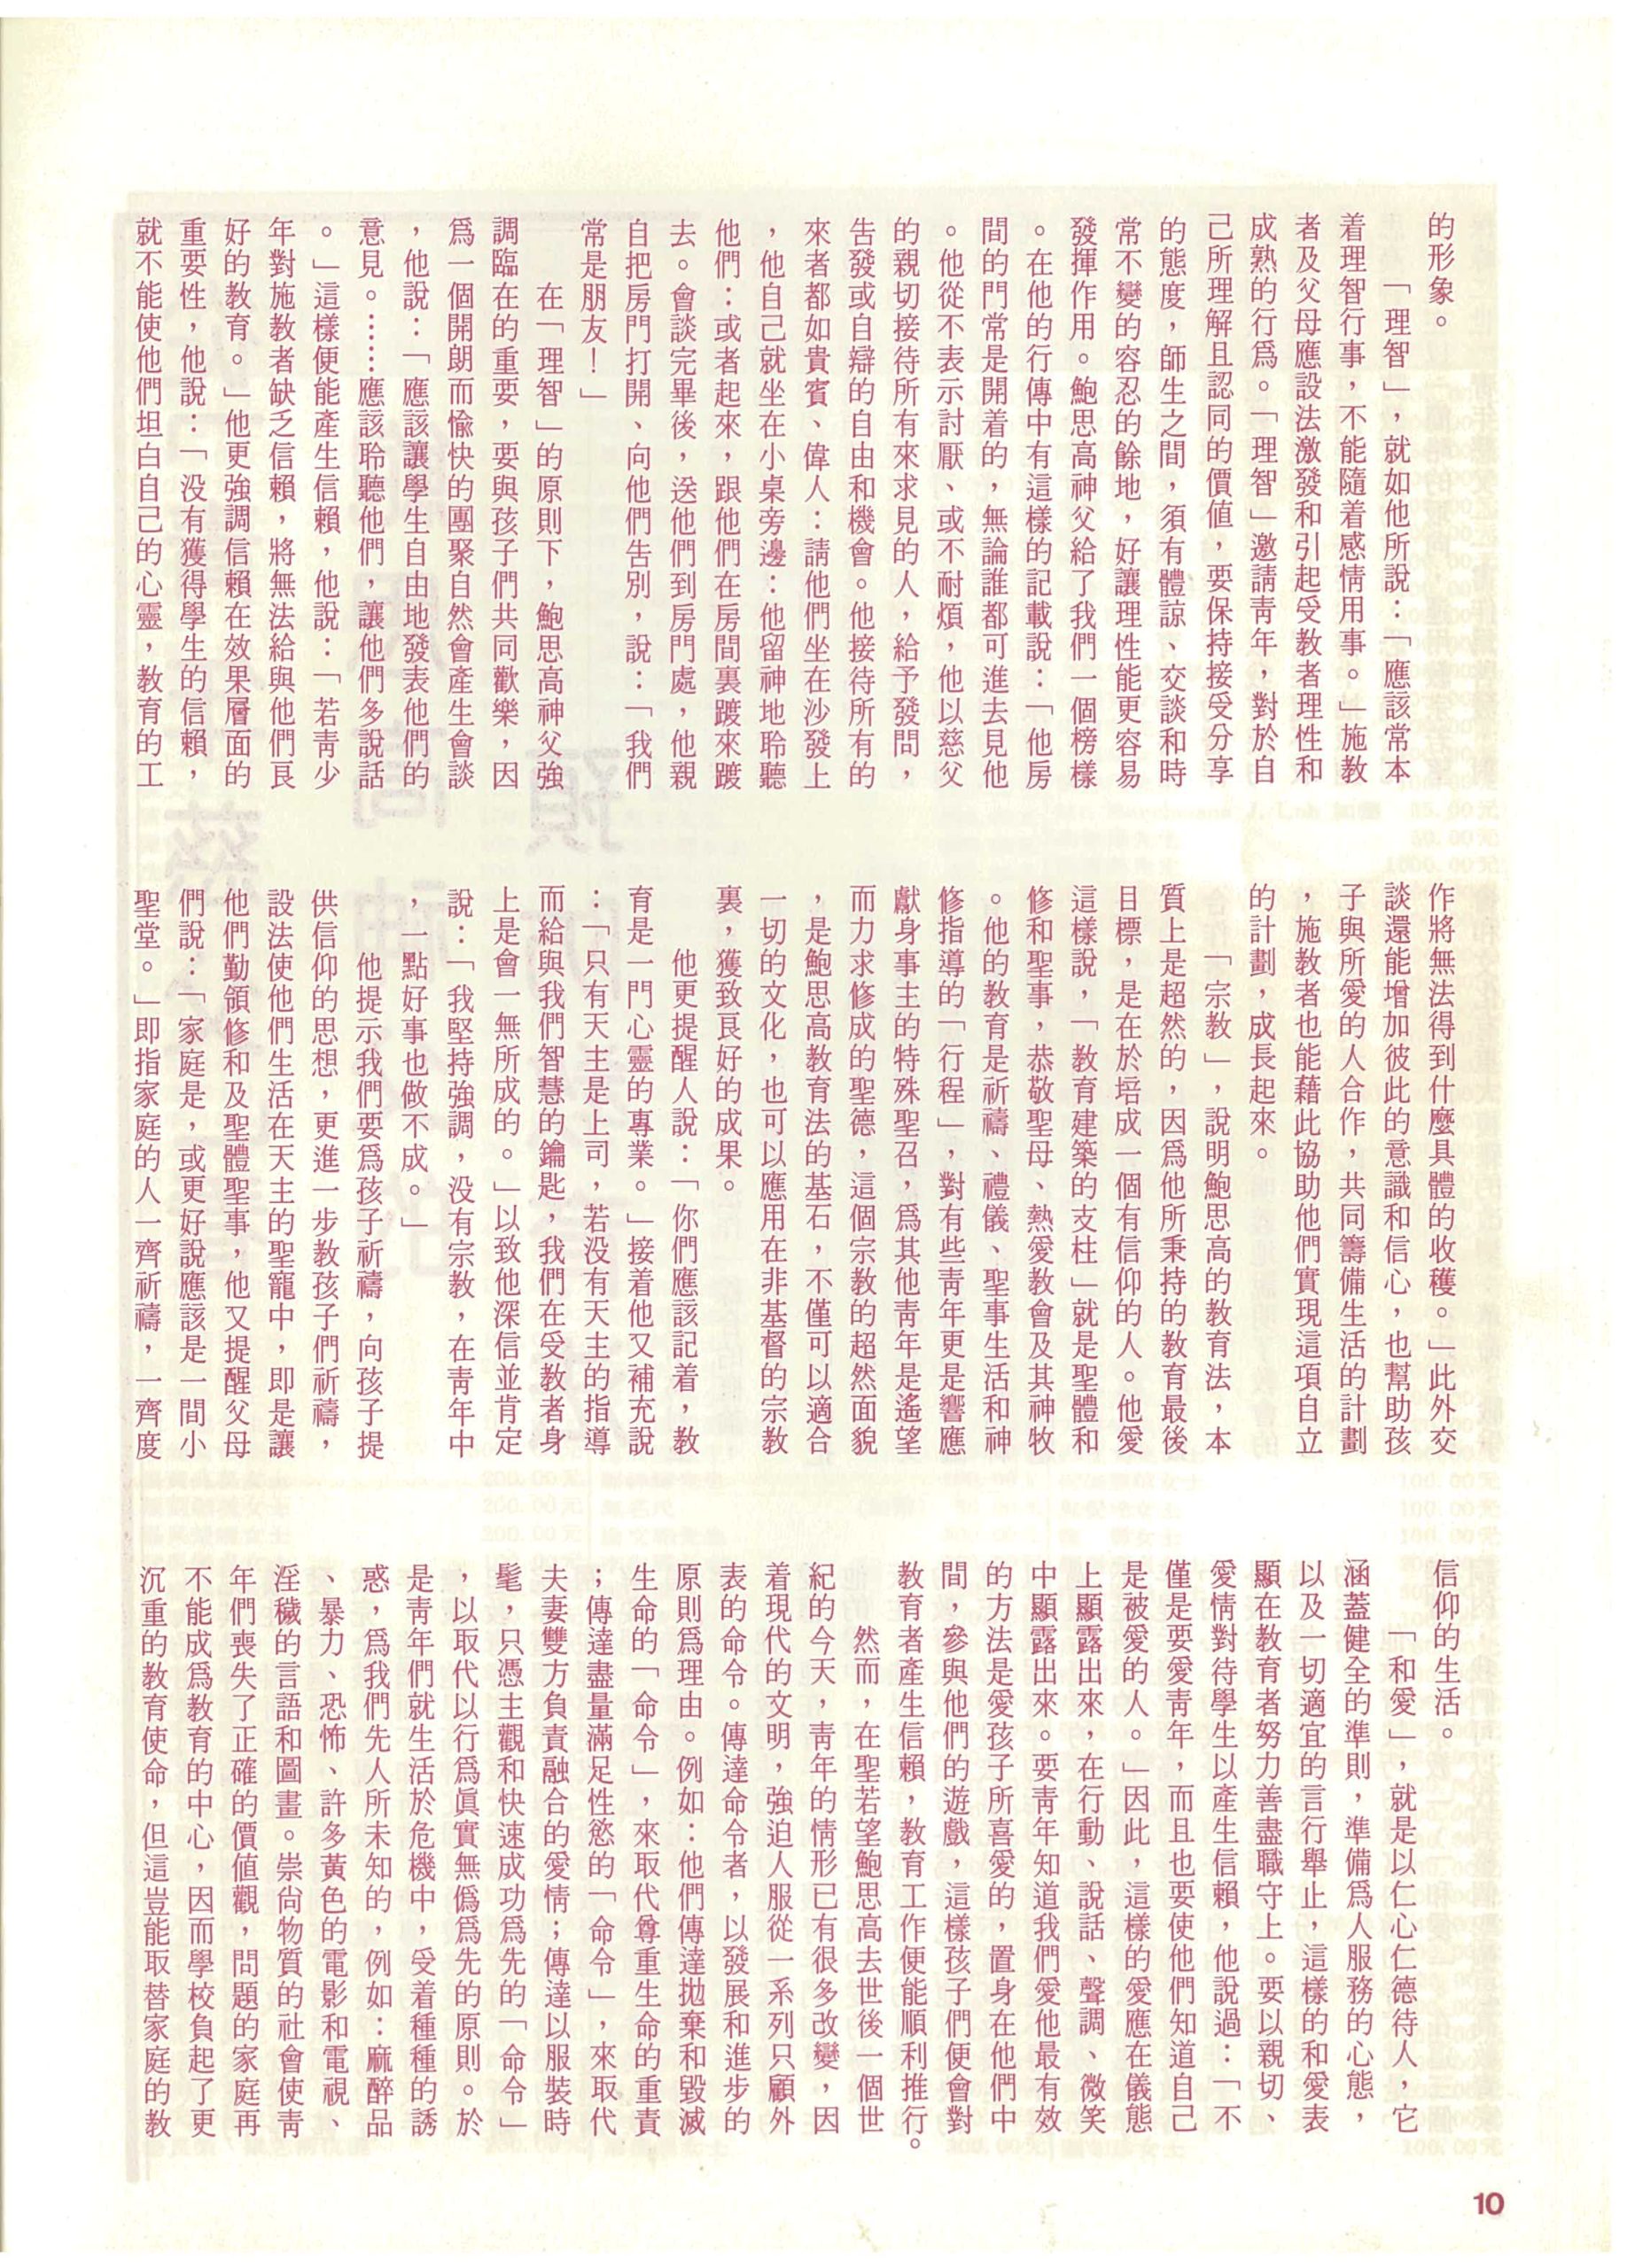 的形象。
「理智」，就如他所說：「應該常本
着理智行事，不能隨着感情用事。」施教
者及父母應設法激發和引起受教者理性和
成熟的行爲。「理智」邀請靑年，對於自
己所理解且認同的價值，要保持接受分享
的態度，師生之間，須有體諒、交談和時
常不變的容忍的餘地，好讓理性能更容易
發揮作用。鮑思高神父給了我們一個榜樣
。在他的行傳中有這樣的記載說：「他房
間的門常是開着的，無論誰都可進去見他
。他從不表示討厭、或不耐煩，他以慈父
的親切接待所有來求見的人，給予發問，
告發或自辯的自由和機會。他接待所有的
來者都如貴賓、偉人：請他們坐在沙發上
，他自己就坐在小桌旁邊：他留神地聆聽
他們：或者起來，跟他們在房間裏踱來踱
去。會談完畢後，送他們到房門處，他親
自把房門打開、向他們告別，說：「我們
常是朋友！」
在「理智」的原則下，鮑思高神父強
調臨在的重要，要與孩子們共同歡樂，因
爲一個開朗而愉快的團聚自然會產生會談
，他說：「應該讓學生自由地發表他們的
意見。……應該聆聽他們，讓他們多說話
。」這樣便能產生信賴，他說：「若靑少
年對施教者缺乏信賴，將無法給與他們良
好的教育。」他更強調信賴在效果層面的
重要性，他說：「沒有獲得學生的信賴，
就不能使他們坦白自己的心靈，教育的工
作將無法得到什麼具體的收穫。」此外交
談還能增加彼此的意識和信心，也幫助孩
子與所愛的人合作，共同籌備生活的計劃
，施教者也能藉此協助他們實現這項自立
的計劃，成長起來。
「宗教」，說明鮑思高的教育法，本
質上是超然的，因爲他所秉持的教育最後
目標，是在於培成一個有信仰的人。他愛
這樣說，「教育建築的支柱」就是聖體和
修和聖事，恭敬聖母、熱愛教會及其神牧
。他的教育是祈禱、禮儀、聖事生活和神
修指導的「行程」，對有些靑年更是響應
獻身事主的特殊聖召，爲其他靑年是遙望
而力求修成的聖德，這個宗教的超然面貌
，是鮑思高教育法的基石，不僅可以適合
一切的文化，也可以應用在非基督的宗教
裏，獲致良好的成果。
他更提醒人說：「你們應該記着，教
育是一門心靈的專業。」接着他又補充說
：「只有天主是上司，若沒有天主的指導
而給與我們智慧的鑰匙，我們在受教者身
上是會一無所成的。」以致他深信並肯定
說：「我堅持強調，沒有宗教，在靑年中
，一點好事也做不成。」
他提示我們要爲孩子祈禱，向孩子提
供信仰的思想，更進一步教孩子們祈禱，
設法使他們生活在天主的聖寵中，即是讓
他們勤領修和及聖體聖事，他又提醒父母
們說：「家庭是，或更好說應該是一間小
聖堂。」即指家庭的人一齊祈禱，一齊度
信仰的生活。
「和愛」，就是以仁心仁德待人，它
涵蓋健全的準則，準備爲人服務的心態，
以及一切適宜的言行舉止，這樣的和愛表
顯在教育者努力善盡職守上。要以親切、
愛情對待學生以產生信賴，他說過：「不
僅是要愛靑年，而且也要使他們知道自己
是被愛的人。」因此，這樣的愛應在儀態
上顯露出來，在行動、說話、聲調、微笑
中顯露出來。要靑年知道我們愛他最有效
的方法是愛孩子所喜愛的，置身在他們中
間，參與他們的遊戲，這樣孩子們便會對
教育者產生信賴，教育工作便能順利推行。
然而，在聖若望鮑思高去世後一個世
紀的今天，靑年的情形已有很多改變，因
着現代的文明，強迫人服從一系列只顧外
表的命令。傳達命令者，以發展和進步的
原則爲理由。例如：他們傳達拋棄和毀滅
生命的「命令」，來取代尊重生命的重責
；傳達盡量滿足性慾的「命令」，來取代
夫妻雙方負責融合的愛情；傳達以服裝時
髦，只憑主觀和快速成功爲先的「命令」
，以取代以行爲眞實無僞爲先的原則。於
是靑年們就生活於危機中，受着種種的誘
惑，爲我們先人所未知的，例如：麻醉品
、暴力、恐怖、許多黃色的電影和電視、
淫穢的言語和圖畫。崇尙物質的社會使靑
年們喪失了正確的價値觀，問題的家庭再
不能成爲教育的中心，因而學校負起了更
沉重的教育使命，但這豈能取替家庭的教
10